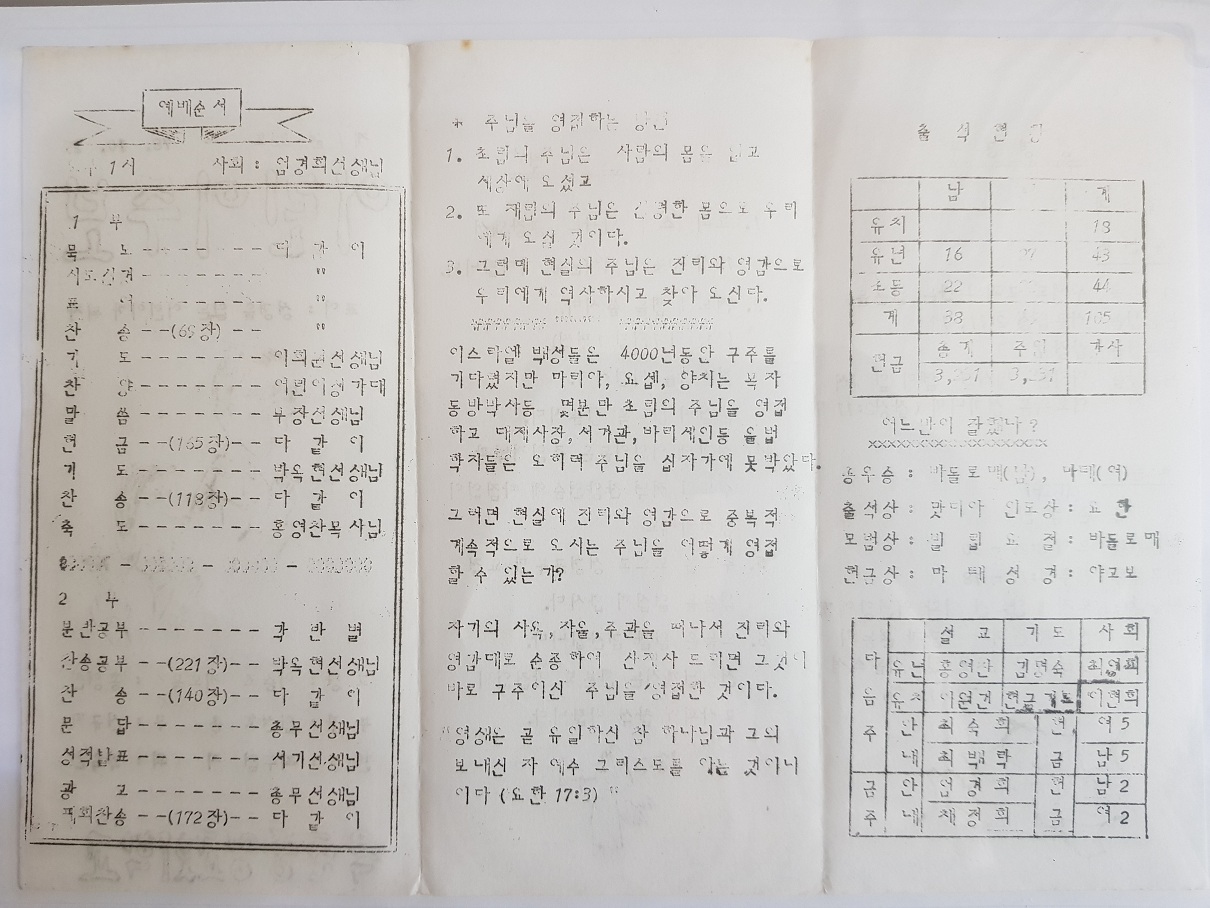 예배순서
1시 사회 : 엄경희선생님
1 부
묵 도 - - - - - - - 다 같 이
사도신경 - - - - - - - "
- - - - - - - "
찬 송 - -(69장)- - "
기 도 - - - - - - - 선생님
찬 양 - - - - - - - 어린이성가대
말 씀 - - - - - - - 부장선생님
헌 금 - -(165장)- - 다 같 이
기 도 - - - - - - - 박옥현선생님
찬 송 - -(118장)- - 다 같 이
축 도 - - - - - - - 홍영찬목사님
2 부
분반공부 - - - - - - - 각 반 별
찬송공부 - -(221장)- - 박옥현선생님
찬 송 - -(140장)- - 다 같 이
문 답 - - - - - - - 총무선생님
성적발표 - - - - - - - 서기선생님
광 고 - - - - - - - 총무선생님
폐회찬송 - -(172장)- - 다 같 이
* 주님을 영접하는 방법
1. 초림의 주님은 사람의 몸을 입고
세상에 오셨고
2. 또 재림의 주님은 신령한 몸으로 우리
에게 오실 것이다.
3. 그런데 현실의 주님은 진리와 영감으로
우리에게 역사하시고 찾아 오신다.
이스라엘 백성들은 4000년동안 구주를
기다렸지만 마리아, 요셉, 양치는 목자
동방박사등 몇분만 초림의 주님을 영접
하고 대제사장, 서기관, 바리세인등 율법
학자들은 오히려 주님을 십자가에 못박았다.
그러면 현실에 진리와 영감으로 중복적
계속적으로 오시는 주님을 어떻게 영접
할 수 있는가?
자기의 사욕, 자율, 주관을 떠나서 진리와
영감대로 순종하여 산제사 드리면 그것이
바로 구주이신 주님을 영접한 것이다.
"영생은 곧 유일하신 참 하나님과 그의
보내신 자 예수 그리스도를 아는 것이니
이다 (요한 17:3) "
출 석 현 황
남 계
유치 18
유년 16 43
소동 22 44
계 38 105
헌금 총계 주일 감사
어느반이 잘했나?
종우승 : 바돌로매(남), 마태(여)
출석상 : 맛디아 인도상 : 요 한
모범상 : 빌 립 요 절 : 바돌로매
헌금상 : 마 태 성 경 : 야고보
설 교 기 도 사 회
다 유년 홍영찬 김명숙 최영희
음 유치 이원건 헌금기도 이현희
주 안 최숙희 헌 여 5
내 최백락 금 남 5
금 안 엄경희 헌 남 2
주 내 채정희 금 여 2